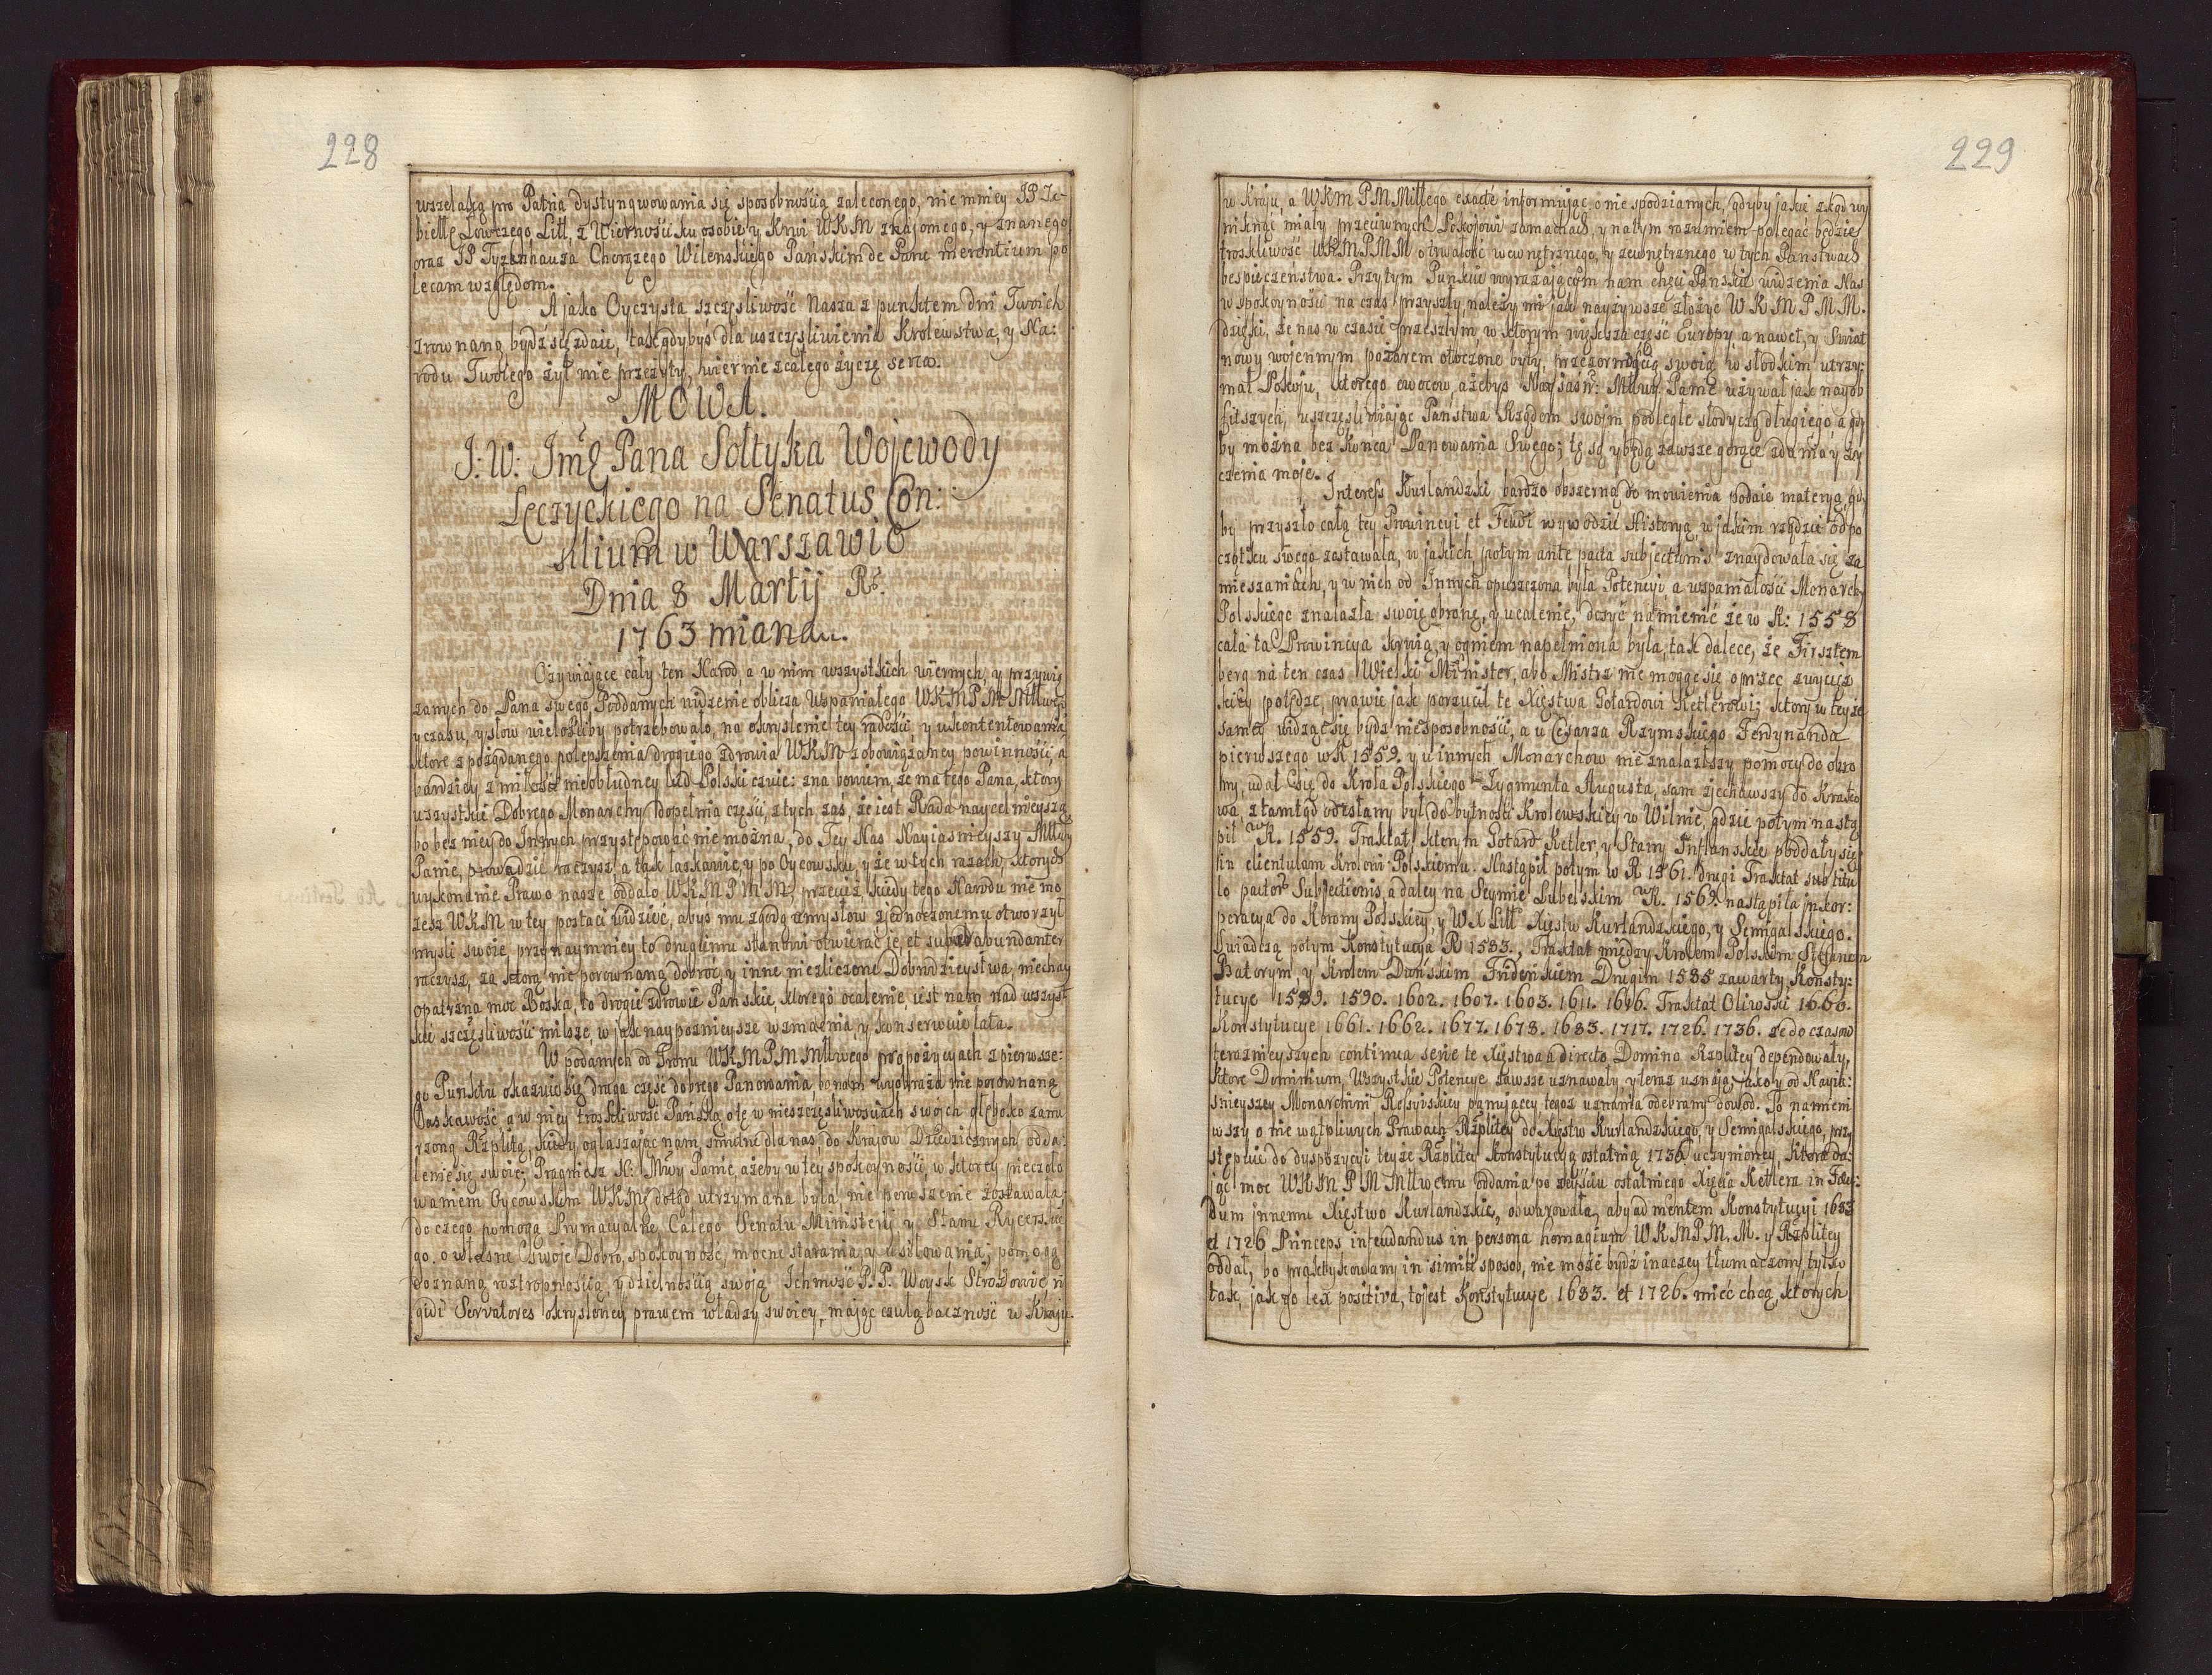 228
wszelaką pro Patria dystyngwowania się sposobnością zaleconego, nie mniey JP Za-
biełłę Łowczego Litt, z Wierności ku osobie y Krwi WKM znajomego, y znanego
oraz JP Tyzenhauza Chorążego Wilenskiego Pańskim de Pane merentium po
lecam względom.
A jako Oyczysta szczęsliwość Nasza z punktem dni Twoich
zrownana bydź się zdaie, tak gdybyś dla uszczęsliwienia Krolewstwa, y Na:
rodu Twoiego żył nie przeżyty, wiernie z całego życzę serca.
MOWA.
J: W: Jmć Pana Sołtyka Wojewody
Łęczyckiego na Senatus Con:
silium w Warszawie
Dnia 8 Martij Rº.
1763 miana.
Ożywiające cały ten Narod, a w nim wszystkich wiernych, y przywią
zanych do Pana swego Poddanych widzenie oblicza Wspaniałego WKMPM Młłwe:
y czasu, y słow wielośćiby potrzebowało, na okryslenie tey radości, y ukontentowania
ktore z pożądanego polepszenia drogiego zdrowia WKM z obowiązaney powinności, a
bardziey z miłości nieobłudney lud Polski czuie: zna bowiem, że ma tego Pana, ktory
wszystkie Dobrego Monarchy dopełnia części, z tych zaś, że iest Rada naycelnieyszą
bo bez niey do Innych przystępować nie można, do Tey Nas Nayiasnieyszy Młłwy
Panie, prowadzić raczysz, a tak łaskawie, y po Oycowsku, y że w tych razach, ktorych
wykonanie Prawo nasze oddało WKMPMM, przecież kiedy tego Narodu nie mo
żesz WKM w tey postaci widzieć, abyś mu zgodą umysłow zjednoczonemu otworzył
mysli swoie, przynaymniey to drugiemu stanowi otwierać je, et superabundanter
raczysz, za ktorą nie porownaną dobroć, y inne niezliczone Dobrodzieystwa, niechay
opatrzna moc Boska, to drogie zdrowie Pańskie, ktorego ocalenie, iest nam nad wszyst
kie szczęsliwości milsze, w jak naypoznieysze wzmacnia, y konserwuie lata.
W podanych od Tronu WKMPM Młłwego propozycyach z pierwsze:
go Punktu okazuie się druga część dobrego Panowania bo nam wyobraża nie porownaną
Łaskawość, a w niey troskliwość Pańską, o tę w nieszczęsliwościach swoich głęboko zanu
rzoną Rzplitą, kiedy ogłaszając nam, smutne dla nas, do Krajow Dziedzicznych odda:
lenie się swoie; Pragniesz N: Młwy Panie, ażeby w tey spokoynosci, w ktorey pieczoło
waniem Oycowskim WKM, dotąd utrzymana była, nie poruszenie zostawała,
do czego pomogą Prymacyalne, Całego Senatu Ministerij y Stanu Rycerskie
go, o własne swoje Dobro, spokoyność, mocne starania, y usiłowania; pomogą
doznaną roztropnością, y dzielnością swoją Ichmość P.P. Woysk Strożowie, ri
gidi Servatores okrysloney prawem władzy swoiey, mając czułą baczność w Kraju.
229
w Kraju, a WKm PM Miłłego exacte informując, o nie spodzianych, gdyby jakie zkąd wy
niknąć miały przeciwnych Pokojowi zamachach, y na tym rozumiem polegać będzie
troskliwość WKMPMM o trwałość wewnętrznego, y zewnętrznego w tych Państwach
bespieczeństwa. Przy tym Punkcie wyrażającym nam chęci Pańskie widzenia Nas
w spokoyności na czas przyszły, należy mi jak nayżywsze złożyć WKMPMM.
dzięki, że nas w czasie przeszłym, w ktorym większa część Europy, a nawet, y Swiat
nowy wojennym pożarem otoczone były, przezornością swoią w słodkim utrzy:
mał Pokoju, ktorego owocow ażebys Nayjaśn: Młłwy Panie używał jak nayob
fitszych, uszczęsliwiając Państwa Rządom swoim podległe słodyczą długiego, a gdy
by można bez końca Panowania Swego; te są y będą zawsze gorące zdania y ży
czenia moje.
Interess Kurlandzki bardzo obszerną do mowienia podaie materyą, gdy
by przyszło całą tey Prowincyi et Feudi wywodzić Historyą, w jakim rządzie od po
czątku swego zostawała, w jakich potym ante pacta subjectionis znaydowała się za
mieszaniach, y w nich od Innych opuszczona była Potencyi a wspaniałości Monarch
Polskiego znalazła swoię obronę, y ucalenie, dosyć namienić że w R: 1558
cała ta Prowincya krwią, y ogniem napełniona była, tak dalece, że Firsztem
berg na ten czas Wielki Minister, abo Mistrz nie mogąc się oprzeć zwycięz
kiey potędze, prawie jak porzucił te Xięstwa Gotardowi Ketlerowi; ktory w teyże
samey widząc się bydź niesposobności, a u Cesarza Rzymskiego Ferdynanda
pierwszego w R 1559. y u innych Monarchow nie znalazłszy pomocy do obro
ny, udał się do Krola Polskiego Zygmunta Augusta, sam zjechawszy do Krako
wa, z tamtąd odesłany był do bytności Krolewskiey w Wilnie, gdzie potym nastą
pił wR. 1559. Traktat, ktorym Gotard Ketler, y Stany Inflanskie poddały się
in clientelam Krolowi Polskiemu. Nastąpił potym w R 1561. drugi Traktat sub titu
lo pactor Subjectionis, a daley na Seymie Lubelskim wR. 1569. nastąpiła inkor:
poracya do Korony Polskiey, y WX Litt Xięstw Kurlandzkiego, y Semigalskiego.
Swiadczą potym Konstytucya R 1583., Traktat między Krolem Polskim Stefanem
Batorym, y Krolem Duńskim Friderikiem Drugim 1585 zawarty, Konsty:
tucye 1589. 1590. 1602. 1607. 1603. 1611. 1616. Traktat Oliwski 1660.
Konstytucye 1661. 1662. 1677. 1678. 1683. 1717. 1726. 1736. że do czasow
teraznieyszych continua serie te Xięstwa a directo Domino Rzplitey dependowały,
ktore Dominium, Wszystkie Potencye zawsze uznawały, y teraz uznają, jako y od Nayia:
śnieyszey Monarchini Rossyiskiey panującey tegoż uznania odebrany dowod. Po namieni
wszy o nie wątpliwych Prawach Rzplitey do Xięstw Kurlandzkiego, y Semigalskiego, przy
stępuię do dyspozycyi teyże Rzplitey konstytucyą ostatnią 1736 uczynioney, ktora da:
jąc moc WKMPM Młłwemu oddania po zeyściu ostatniego Xięcia Ketlera in Feu:
dum innemu Xięstwo Kurlandzkie, obwarowała, aby ad mentem Konstytucyi 1683
et 1726 Princeps infeudandus in persona homagium WKMPM. M. y Rzplitey
oddał, bo praktykowany in simili sposob, nie może bydź inaczey tłumaczony, tylko
tak, jak go lex positiva, to jest Konstytucye 1683. et 1726. mieć chcą, ktorych